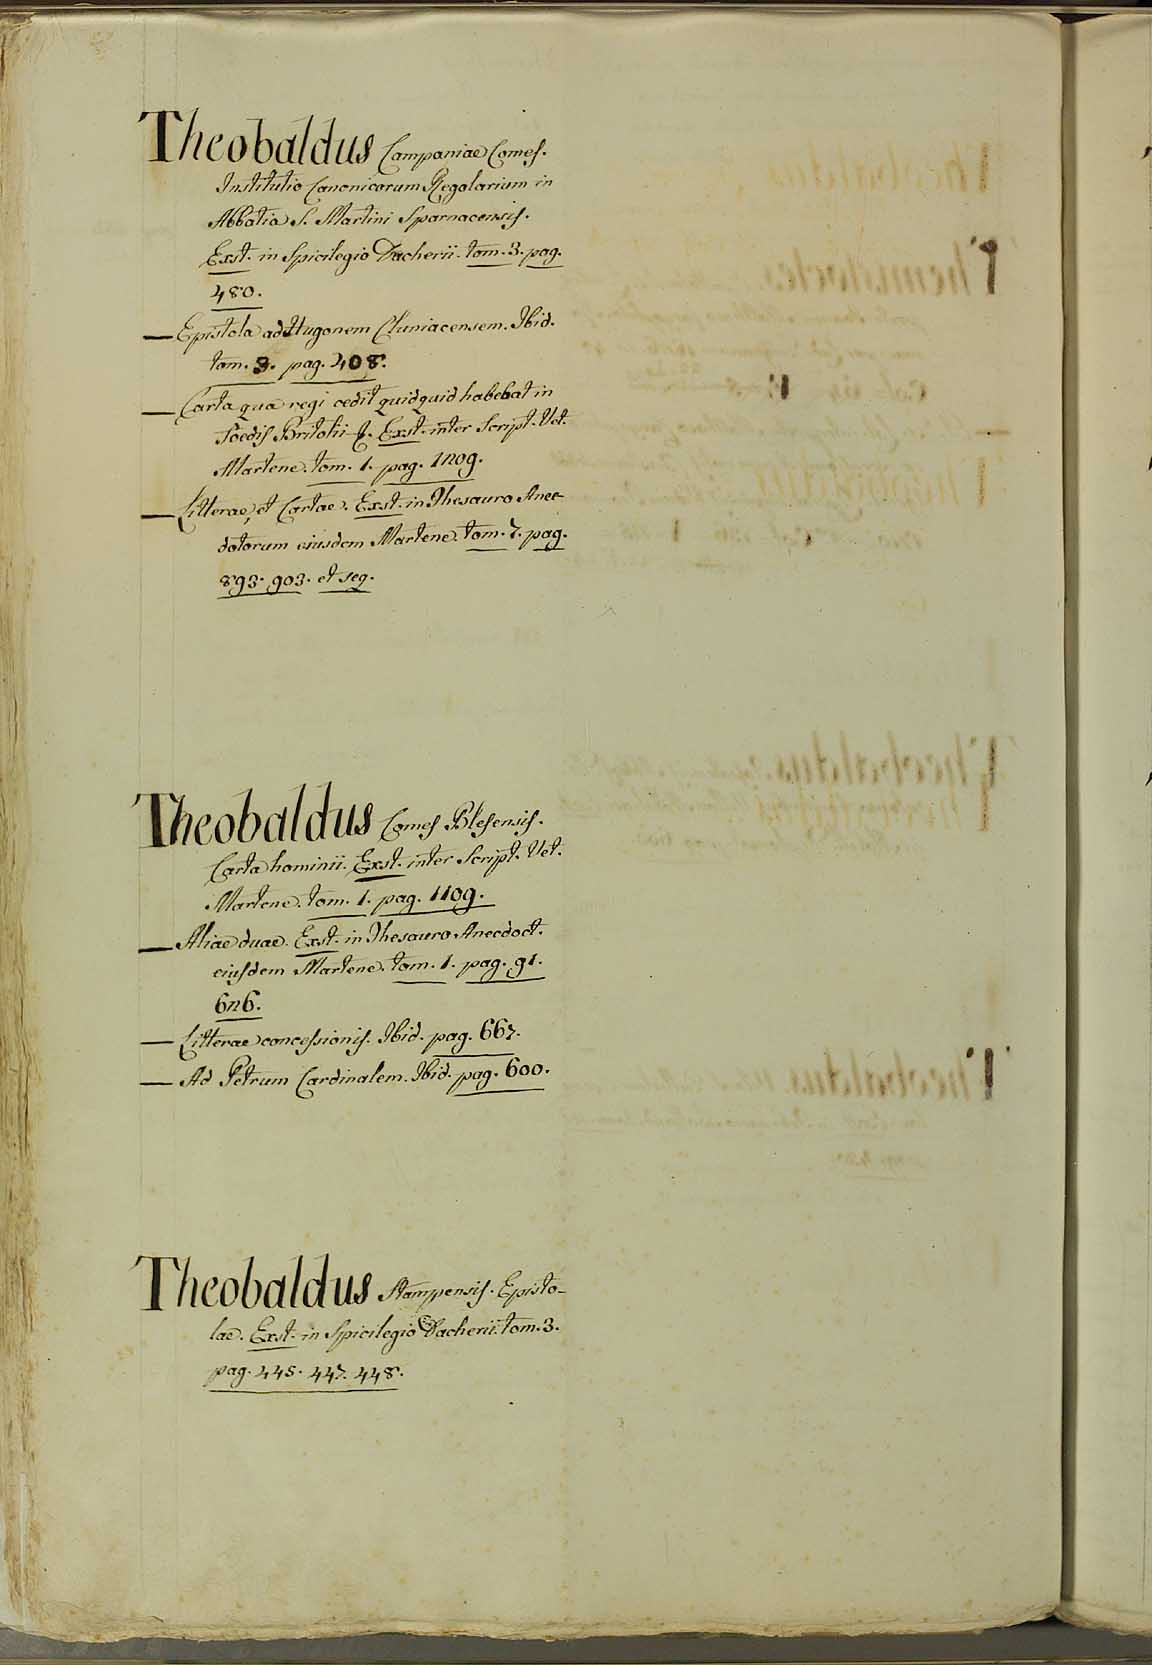 Theobaldus Campaniae Comes.
Institutio Canonicorum Regolarium in
Abbatia S. Martini Sparnacensis.
Exst. in Spicilegio Dacherii. tom. 3. pag.
480.
— Epistola ad Hugonem Cluniacensem. Ibid.
tom. 3. pag. 408.
— Carta qua regi cedit quidquid habebat in
Foedis Britolii &. Exst. inter Script. Vet.
Martene. tom. 1. pag. 1209.
— Litterae, et Cartae. Exst. in Thesauro Anec-
dotorum eiusdem Martene. tom. 1. pag.
893. 903. et seq.
Theobaldus Comes Blesensis.
Carta hominii. Exst. inter Script. Vet.
Martene. tom. 1. pag. 1109.
— Aliae duae. Exst. in Thesauro Anecdoct.
eiusdem Martene. tom. 1. pag. 91.
626.
— Litterae concessionis. Ibid. pag. 667.
— Ad Petrum Cardinalem. Ibid. pag. 600.
Theobaldus Stampensis. Episto-
lae. Exst. in Spicilegio Dacherii. tom. 3.
pag. 445. 447. 448.